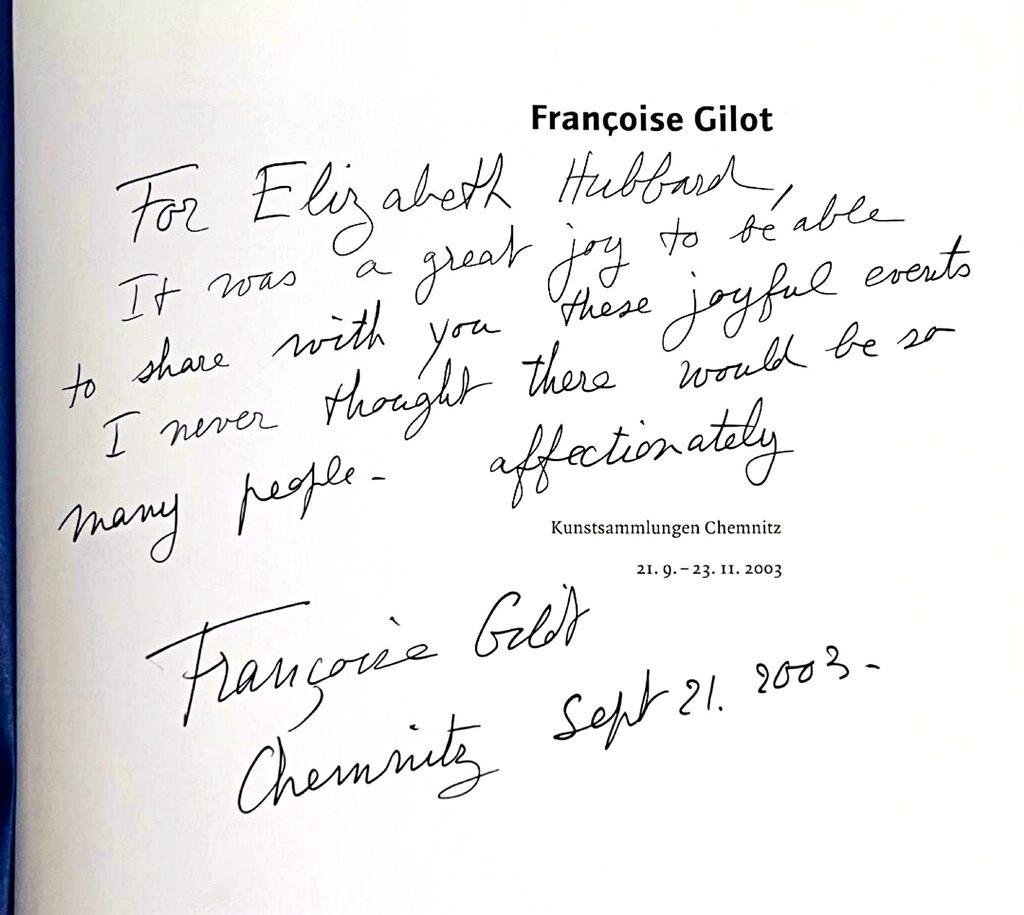 Françoise Gilot
For Elizabeth Hubbard,
It was a great joy to be able
to share with you these joyful events
I never thought there would be so
many people - affectionately
Kunstsammlungen Chemnitz
21. 9. – 23. 11. 2003
Françoise Gilot
Chemnitz Sept 21. 2003 -